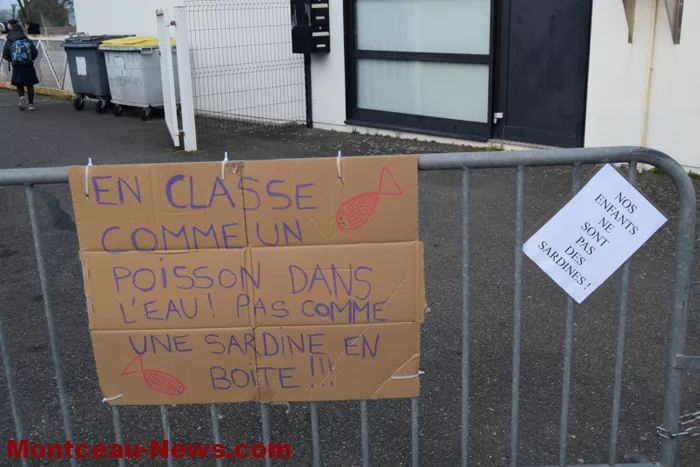 EN CLASSE
COMME UN
POISSON DANS
L'EAU! PAS COMME
UNE SARDINE EN
BOITE!!!
NOS
ENFANTS
NE
SONT
PAS
DES
SARDINES!
Montceau-News.com